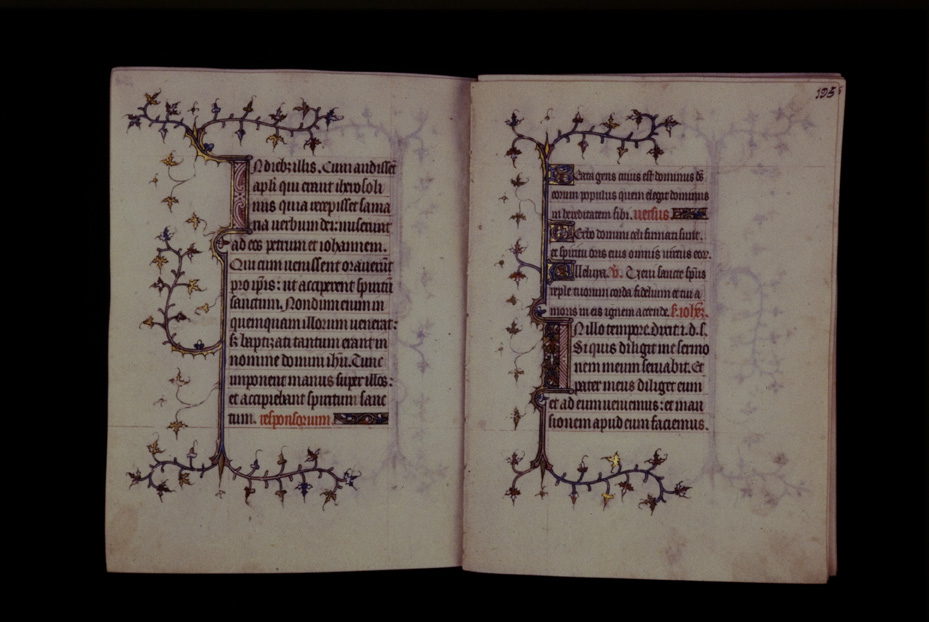 In dieb; illis. Cum audisset
apli qui erant iherosoli
mis quia recepisset sama
ria uerbum dei: miserunt
ad eos petrum et iohannem.
Qui cum uenissent orauerūt
pro ip̄is: ut acciperent spiritū
sanctum. Nondum enim in
quemquam illorum uenerat:
s; baptizati tantum erant in
nomine domini ih̄u. Tunc
imponent manus super illos:
et accipiebant spiritum sanc
tum. responsorium
195
Beata gens cuius est dominus ds̄
eorum populus quem elegit dominus
in hereditatem sibi. uersus
Verbo domini celi firmati sunt.
et spiritu oris eius omnis uirtus eor.
Alleluya. V̄. Veni sancte sp̄us
reple tuorum corda fidelium et tui a
moris in eis ignem accende. s. ioh̄ez.
In illo tempore. dixit i. d. s.
Si quis diligit me sermo
nem meum seruabit. Et
pater meus diliget eum
et ad eum ueniemus: et man
sionem apud eum faciemus.